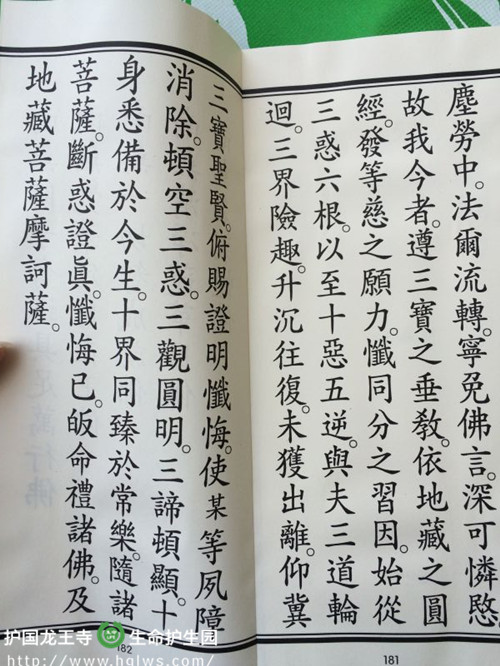 塵勞中。法爾流轉。寧免佛言。深可憐愍
故我今者。遵三寶之垂教。依地藏之圓
經。發等慈之願力。懺同分之習因。始從
三惑六根。以至十惡五逆。與夫三道輪
迴。三界險趣。升沉往復。未獲出離。仰冀
181
三寶聖賢。俯賜證明懺悔。使某等夙障
消除。頓空三惑。三觀圓明。三諦頓顯。十
身悉備於今生。十界同臻於常樂。隨諸
菩薩。斷惑證眞。懺悔已。皈命禮諸佛。及
地藏菩薩摩訶薩。
182
护国龙王寺 生命护生园
http://www.hglws.com